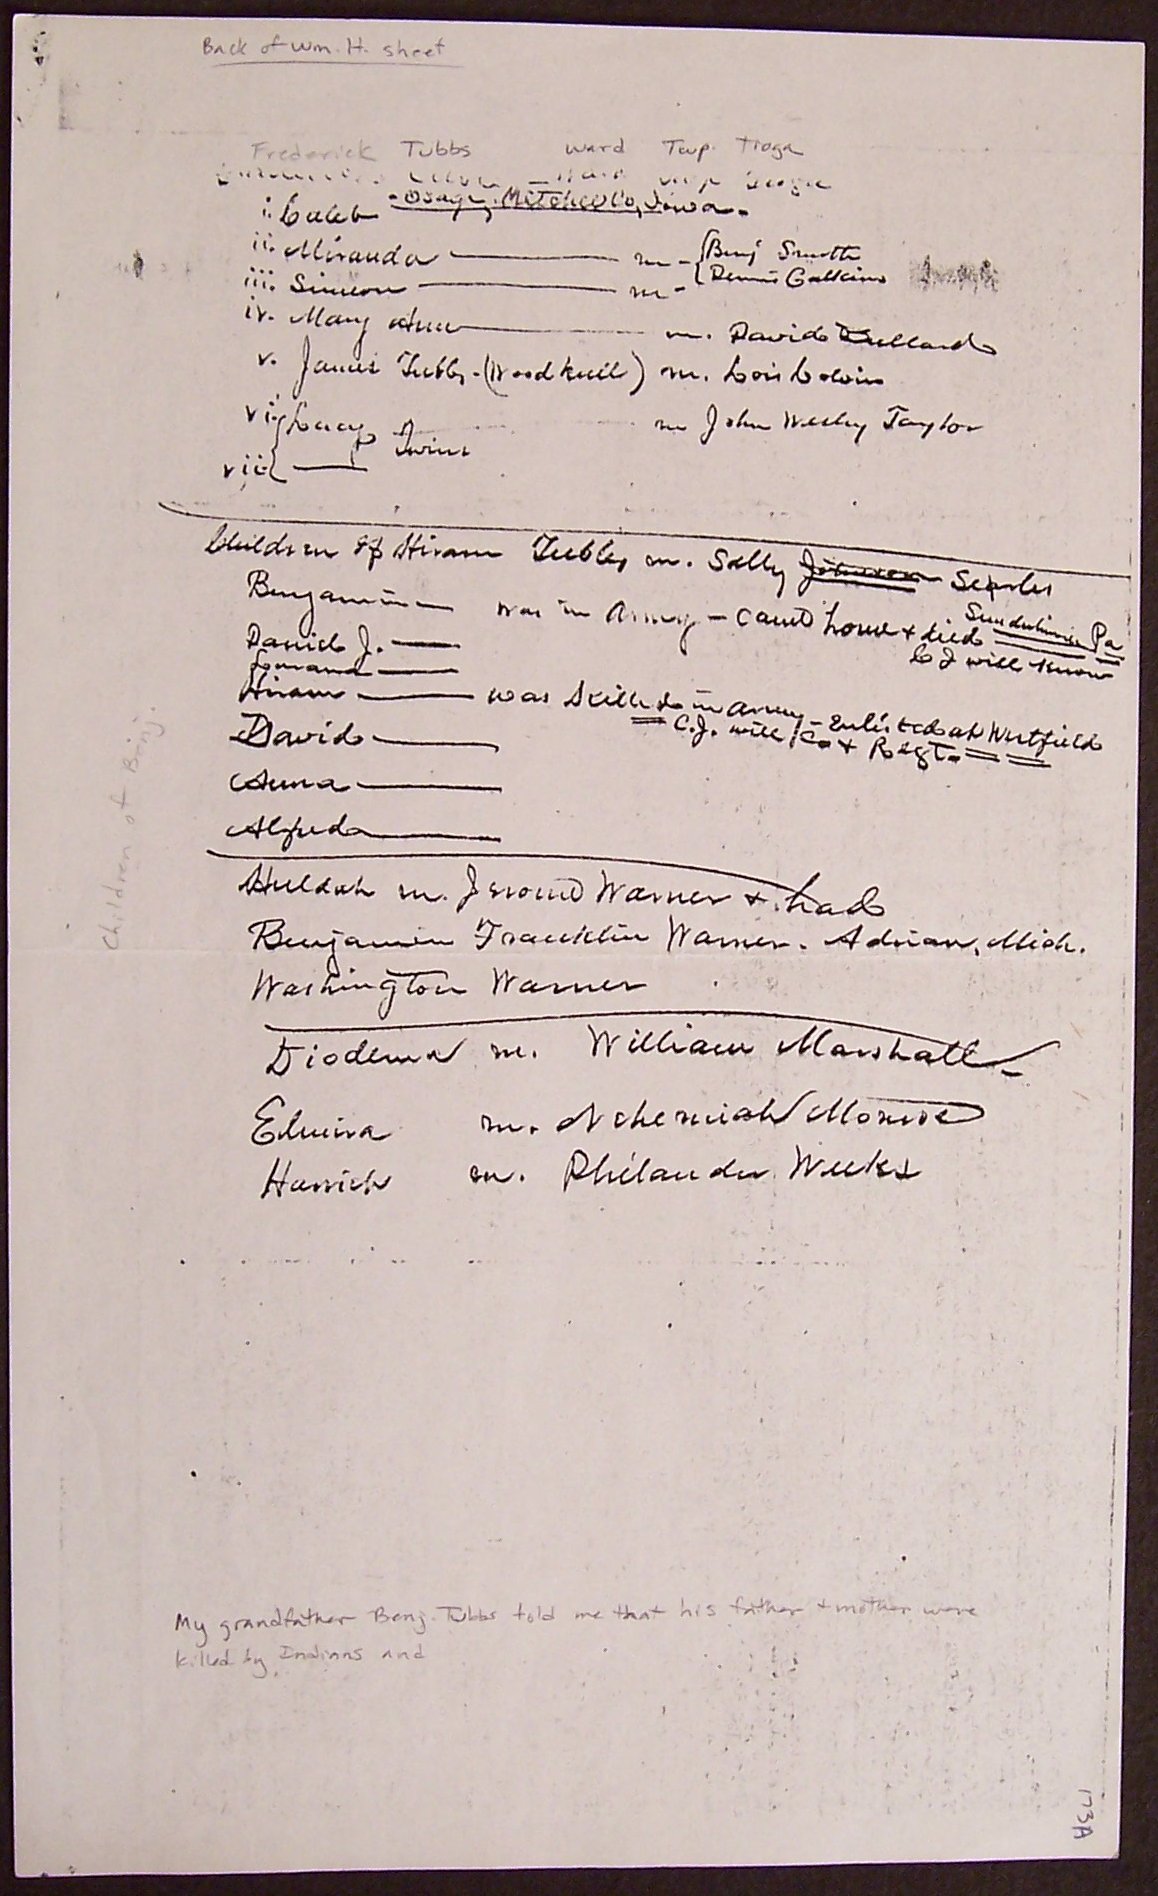 Back of Wm. H. sheet
Frederick Tubbs Ward Twp. Tioga
i. Caleb - Osage, Mitchell Co, Iowa.
ii. Miranda m - { Benj Smith
iii. Simeon m - Dennis Calkins
iv. Mary Ann m. David Bullard
v. James Tubbs - (Woodhull) m. Lois Colvin
vi. Lucy Twins m John Wesley Taylor
vii
Children of Hiram Tubbs m. Sally Johnson Searles
Benjamin was in Army - came home & died Sunderlinville Pa
Daniel J. C J will know
Lourana
Hiram was killed in army - Enlisted at Westfield
C.J. will Co + Regt.
David
Anna
Alfreda
Huldah m. Jerome Warner & had
Benjamin Francklin Warner. Adrian, Mich.
Washington Warner
Diodema m. William Marshall
Elmira m. Nehemiah Monroe
Harriet m. Philander Weeks
Children of Benj.
My grandfather Benj. Tubbs told me that his father + mother were
killed by Indians and
173A